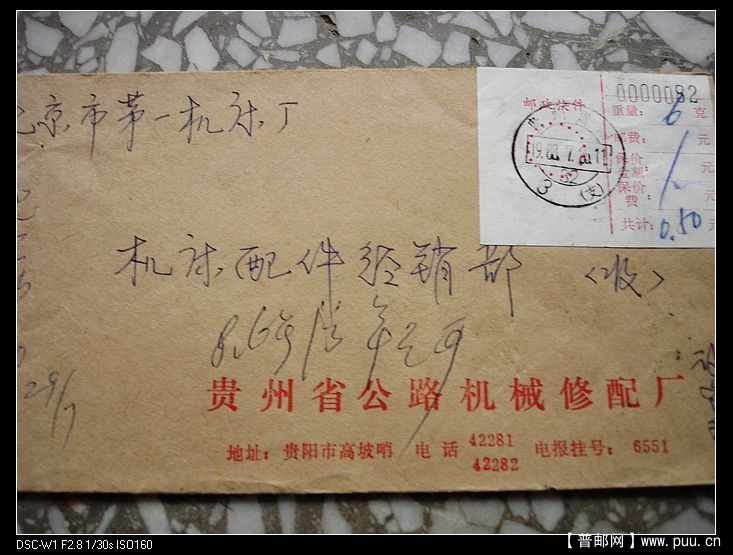 北京市第一机床厂
邮政快件
0000082
重量: 6 克
邮费: 元
保价金额: 元
保价费: 元
共计: 0.50 元
3 (支)
机床配件经销部 (收)
29/7
贵州省公路机械修配厂
地址: 贵阳市高坡哨 电话 42281 42282 电报挂号: 6551
DSC-W1 F2.8 1/30s ISO160
【普邮网】www.puu.cn